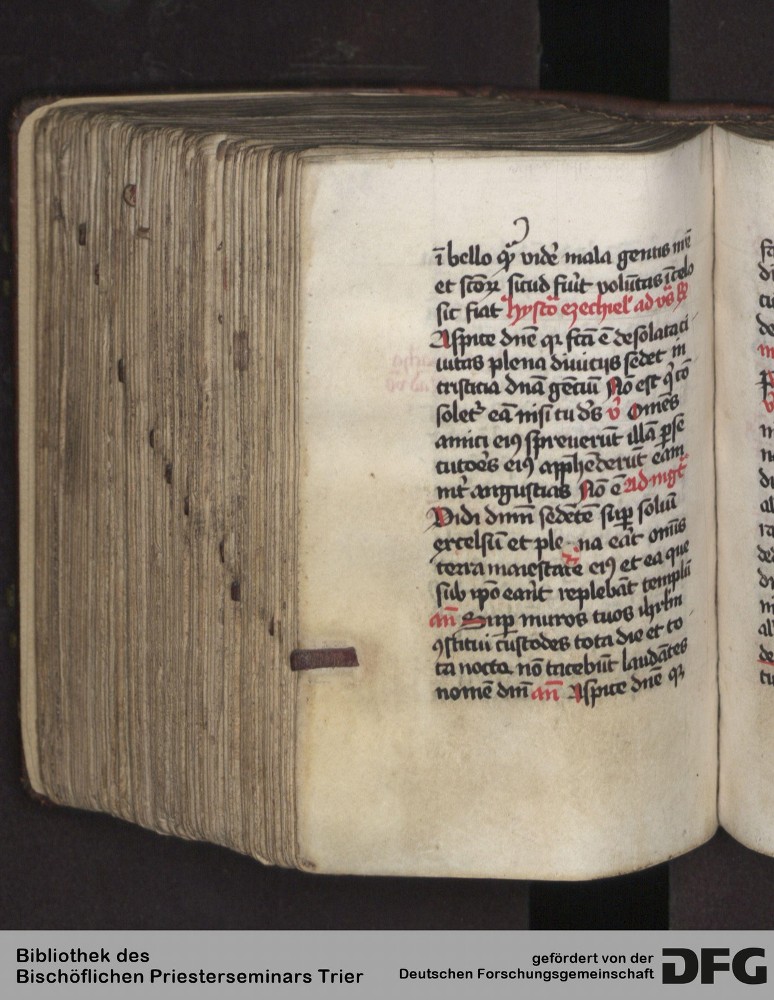 ī bello qͣ vidē mala gentis nr̄e
et sc̄oꝝ sicud fūit volūtas ī celo
sic fiat hystͦ ezechiel ad vs̄ ꝶ
Aspice dn̄e qꝛ fc̄a ē desolata ci
uitas plena diuicijs sedet in
tristicia dn̄a genciū Nō est qͥ cō
soletͬ eā nisi tu ds̄ v̄ Omēs
amici eiꝰ spreuerūt illā ꝑse
cutoēs eiꝰ appͪhēderūt eam
int̄ angustias Nō ē ad mgͭ
Vidi dnm̄ sedētē suꝑ soliū
excelsū et ple na eāt omīs
terra maiestate eiꝰ et ea que
sub ip̄o eant̄ replebāt templū
an̄ Suꝑ muros tuos ihrl̄m
ꝯstitui custodes tota die et to
ta nocte nō tacebūt laudātes
nomē dnī an̄ Aspice dn̄e qꝛ
Bibliothek des
Bischöflichen Priesterseminars Trier
gefördert von der
Deutschen Forschungsgemeinschaft DFG